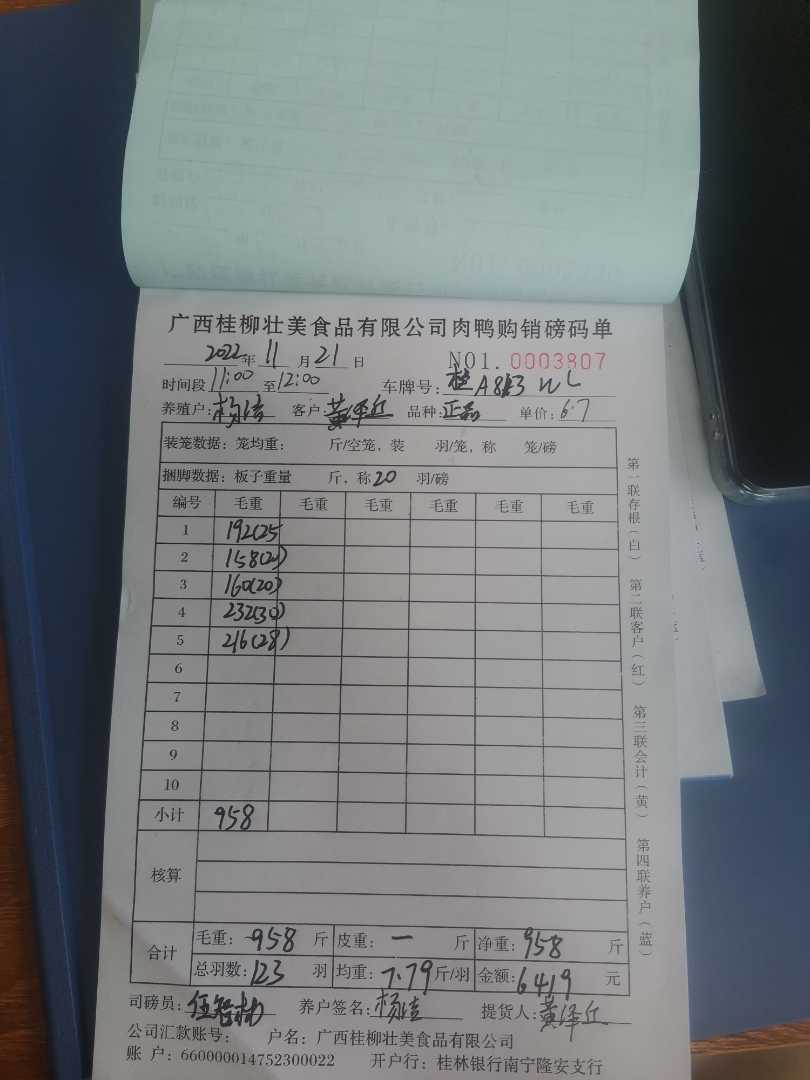 广西桂柳壮美食品有限公司肉鸭购销磅码单
2022年 11 月 21 日 NO1. 0003807
时间段 11:00 至 12:00 车牌号: 桂A8
养殖户: 杨 客户: 黄泽丘 品种: 正品 单价: 6.7
装笼数据: 笼均重: 斤/空笼, 装 羽/笼, 称 笼/磅
捆脚数据: 板子重量 斤, 称 20 羽/磅
编号 毛重 毛重 毛重 毛重 毛重 毛重
1 192(25
2 158(20)
3 160(20)
4 232(30)
5 216(28)
6
7
8
9
10
小计 958
核算
合计 毛重: 958 斤 皮重: 一 斤 净重: 958 斤
总羽数: 123 羽 均重: 7.79 斤/羽 金额: 6419 元
司磅员: 养户签名: 杨 提货人: 黄泽丘
公司汇款账号: 户名: 广西桂柳壮美食品有限公司
账 户: 660000014752300022 开户行: 桂林银行南宁隆安支行
第一联存根(白) 第二联客户(红) 第三联会计(黄) 第四联养户(蓝)